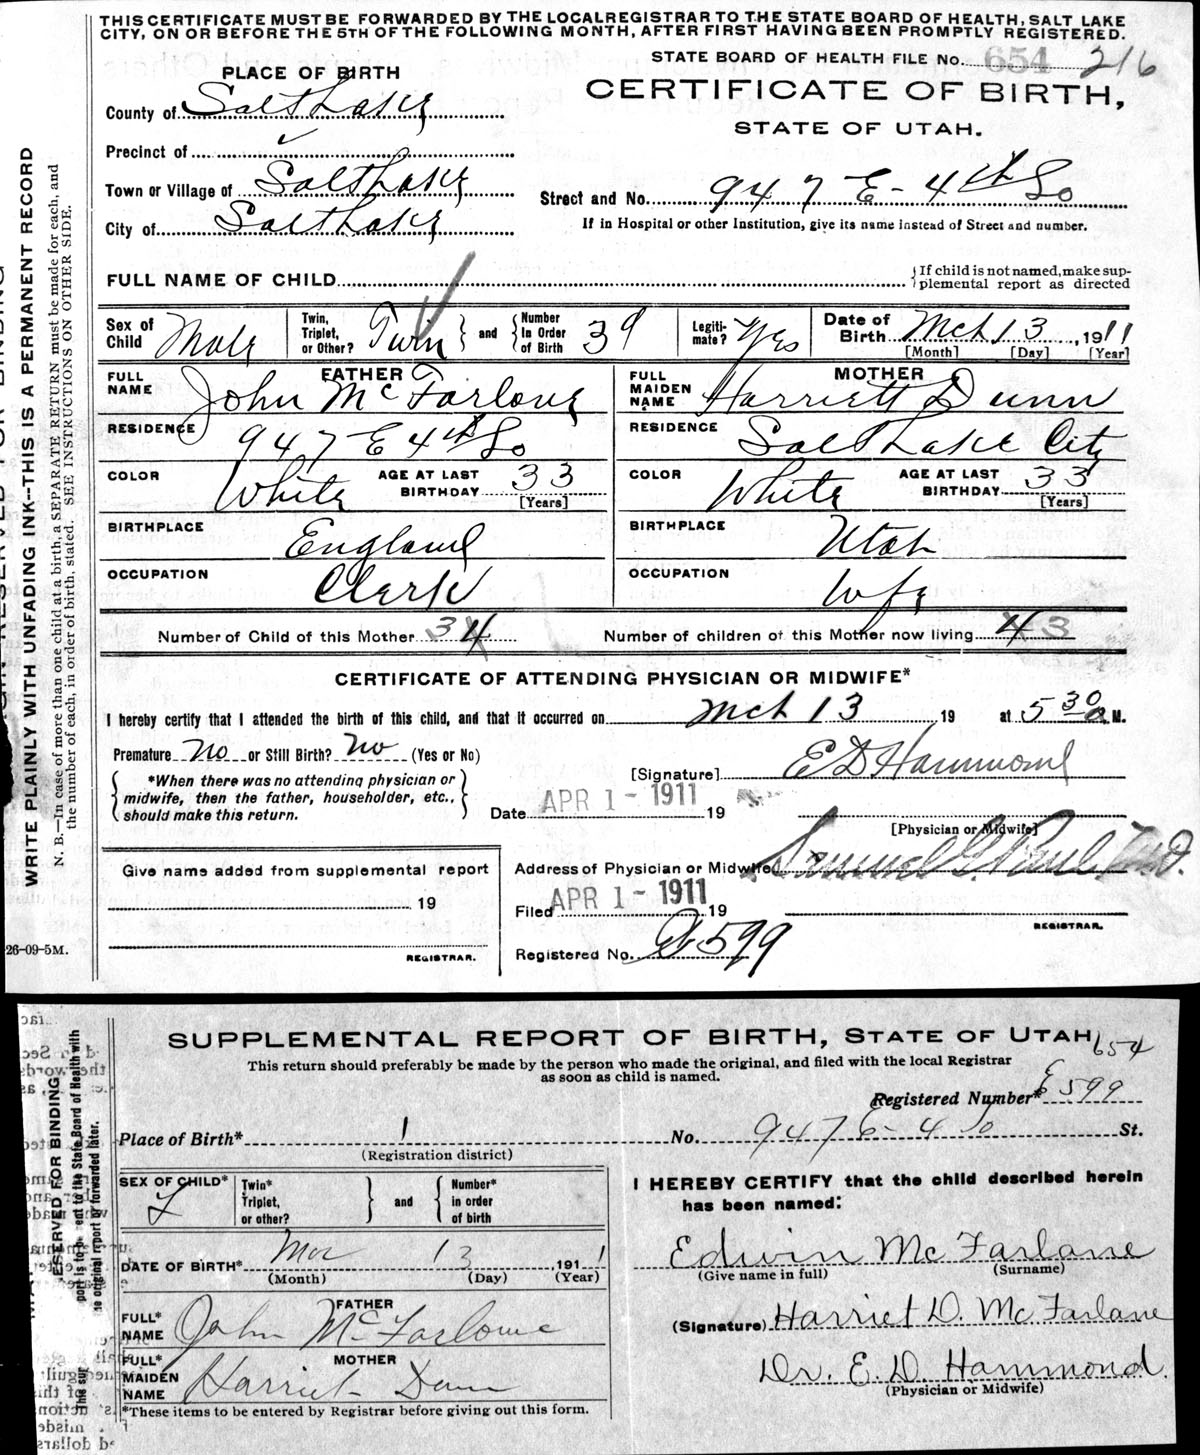 THIS CERTIFICATE MUST BE FORWARDED BY THE LOCALREGISTRAR TO THE STATE BOARD OF HEALTH, SALT LAKE
CITY, ON OR BEFORE THE 5TH OF THE FOLLOWING MONTH, AFTER FIRST HAVING BEEN PROMPTLY REGISTERED.
STATE BOARD OF HEALTH FILE No. 654 216
PLACE OF BIRTH
CERTIFICATE OF BIRTH,
County of Salt Lake
STATE OF UTAH.
Precinct of
Town or Village of Salt Lake
Street and No. 947 E - 4th So
City of Salt Lake
If in Hospital or other Institution, give its name instead of Street and number.
FULL NAME OF CHILD
If child is not named, make sup-
plemental report as directed
Sex of Child Male
Twin, Triplet, or Other? Twin and Number In Order of Birth 3
Legiti-mate? Yes
Date of Birth Mch 13, 1911
[Month] [Day] [Year]
FATHER
FULL NAME John McFarlane
MOTHER
FULL MAIDEN NAME Harriett Dunn
RESIDENCE 947 E 4th So
RESIDENCE Salt Lake City
COLOR White AGE AT LAST BIRTHDAY 33 [Years]
COLOR White AGE AT LAST BIRTHDAY 33 [Years]
BIRTHPLACE England
BIRTHPLACE Utah
OCCUPATION Clerk
OCCUPATION Wfe
Number of Child of this Mother 3 4
Number of children of this Mother now living 4 3
CERTIFICATE OF ATTENDING PHYSICIAN OR MIDWIFE*
I hereby certify that I attended the birth of this child, and that it occurred on Mch 13 19 at 5 30 a M.
Premature No or Still Birth? No (Yes or No)
*When there was no attending physician or
midwife, then the father, householder, etc.,
should make this return.
[Signature] E D Hammond
Date APR 1 - 1911 19
[Physician or Midwife]
Give name added from supplemental report
19
REGISTRAR.
Address of Physician or Midwife
Samuel G. Paul, M.D.
Filed APR 1 - 1911 19
REGISTRAR.
Registered No. 599
26-09-5M.
WRITE PLAINLY WITH UNFADING INK--THIS IS A PERMANENT RECORD
N. B.—In case of more than one child at a birth, a SEPARATE RETURN must be made for each, and
the number of each, in order of birth, stated. SEE INSTRUCTIONS ON OTHER SIDE.
SUPPLEMENTAL REPORT OF BIRTH, STATE OF UTAH 654
This return should preferably be made by the person who made the original, and filed with the local Registrar
as soon as child is named.
Registered Number* 599
Place of Birth* 1 No. 947 E - 4 So St.
(Registration district)
SEX OF CHILD*
Twin* Triplet, or other? and Number* in order of birth
I HEREBY CERTIFY that the child described herein
has been named:
DATE OF BIRTH* Mar 13 1911
(Month) (Day) (Year)
Edwin McFarlane
(Give name in full) (Surname)
FATHER
FULL* NAME John McFarlane
(Signature) Harriet D. McFarlane
MOTHER
FULL* MAIDEN NAME Harriet Dunn
Dr. E. D. Hammond.
(Physician or Midwife)
*These items to be entered by Registrar before giving out this form.